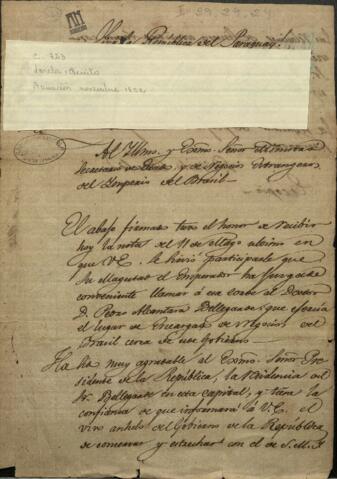 I-29,29,24
República del Paraguay
C. 783
Asunción noviembre 1852
Al Illmo. y Exmo. Señor Ministro
Secretario de Estado y de Negocios Estrangeros
del Imperio del Brasil
El abajo firmado tuvo el honor de recibir
hoy la nota del 11 de Mayo ultimo en
que V.E. le participarle que
Su Magestad el Emperador ha juzgado
conveniente llamar á esa corte al Doctor
D. Pedro Alcantara Bellegarde que ejercia
el lugar de Encargado de Negocios del
Brasil cerca de este Gobierno.
Ha sido muy agradable al Exmo. Señor Pre-
sidente de la República, la residencia del
Sr. Bellegarde en esta capital, y tiene la
confianza de que informará á V.E. el
vivo anhelo del Gobierno de la República
de conservar y estrechar con el de S.M.I.